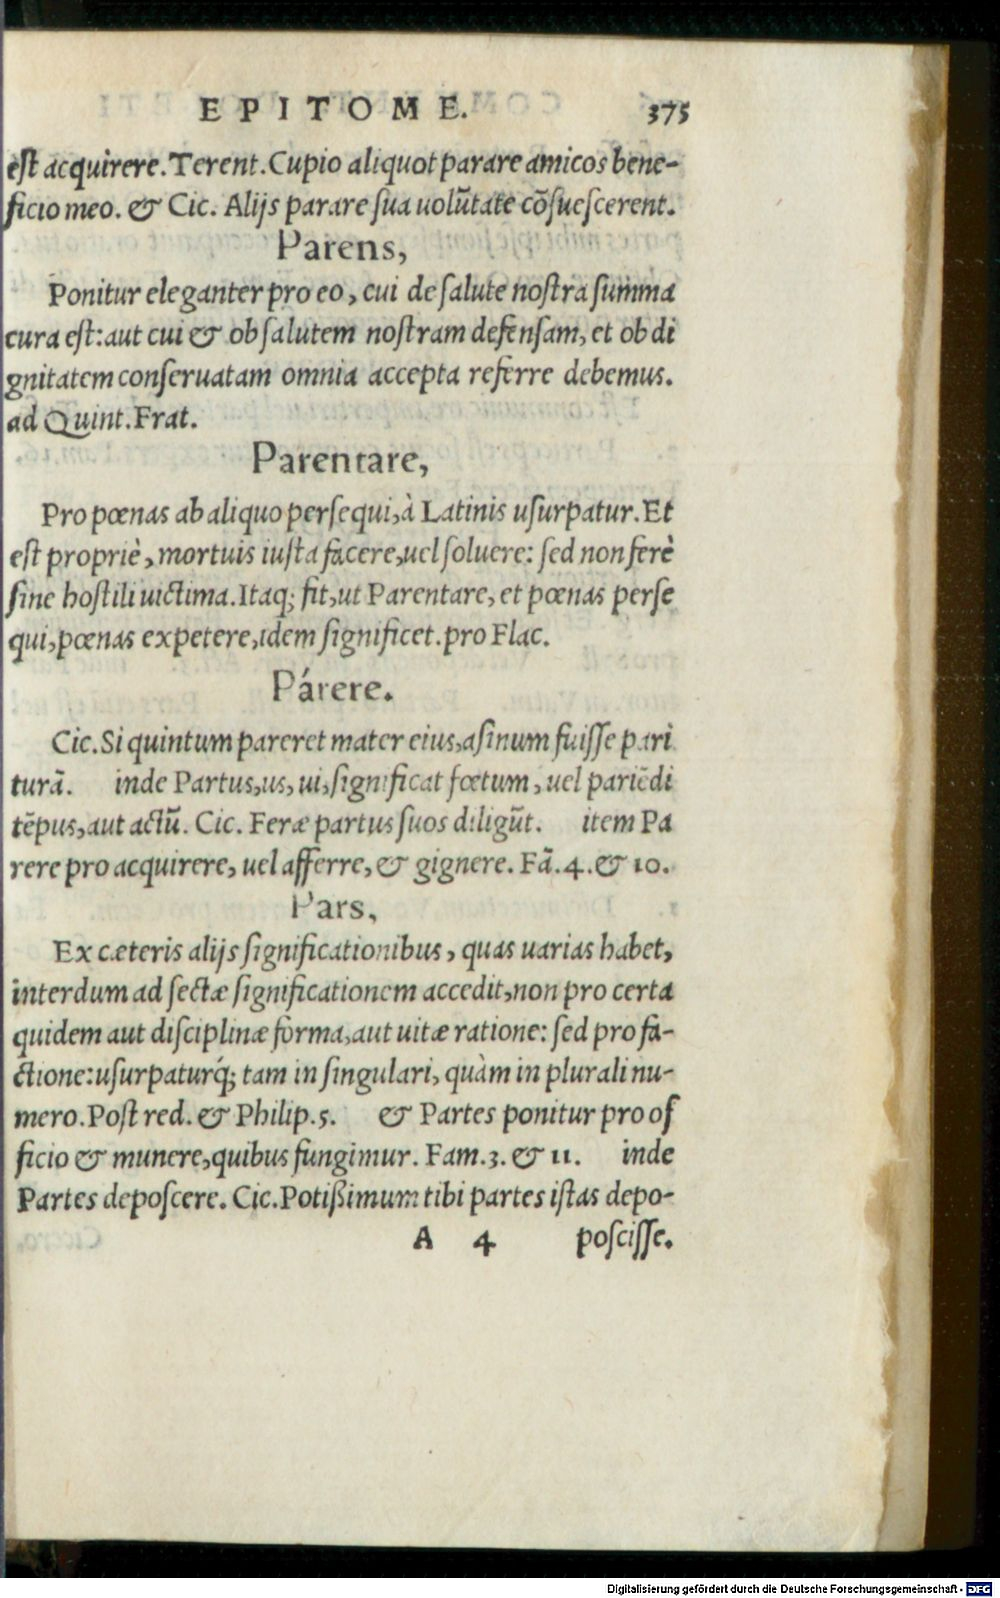 EPITOME. 375
est acquirere. Terent. Cupio aliquot parare amicos bene-
ficio meo. & Cic. Alijs parare sua uolūtate cōsuescerent.
Parens,
Ponitur eleganter pro eo, cui de salute nostra summa
cura est: aut cui & ob salutem nostram defensam, et ob di
gnitatem conseruatam omnia accepta referre debemus.
ad Quint. Frat.
Parentare,
Pro pœnas ab aliquo persequi, à Latinis usurpatur. Et
est propriè, mortuis iusta facere, uel soluere: sed non ferè
sine hostili uictima. Itaq; fit, ut Parentare, et pœnas perse
qui, pœnas expetere, idem significet. pro Flac.
Párere.
Cic. Si quintum pareret mater eius, asinum fuisse pari
turā. inde Partus, us, ui, significat fœtum, uel pariēdi
tēpus, aut actū. Cic. Feræ partus suos diligūt. item Pa
rere pro acquirere, uel afferre, & gignere. Fā. 4. & 10.
Pars,
Ex cæteris alijs significationibus, quas uarias habet,
interdum ad sectæ significationem accedit, non pro certa
quidem aut disciplinæ forma, aut uitæ ratione: sed pro fa-
ctione: usurpaturq́; tam in singulari, quàm in plurali nu-
mero. Post red. & Philip. 5. & Partes ponitur pro of
ficio & munere, quibus fungimur. Fam. 3. & 11. inde
Partes deposcere. Cic. Potißimum tibi partes istas depo-
A 4 poscisse.
Cicero,
Digitalisierung gefördert durch die Deutsche Forschungsgemeinschaft - DFG